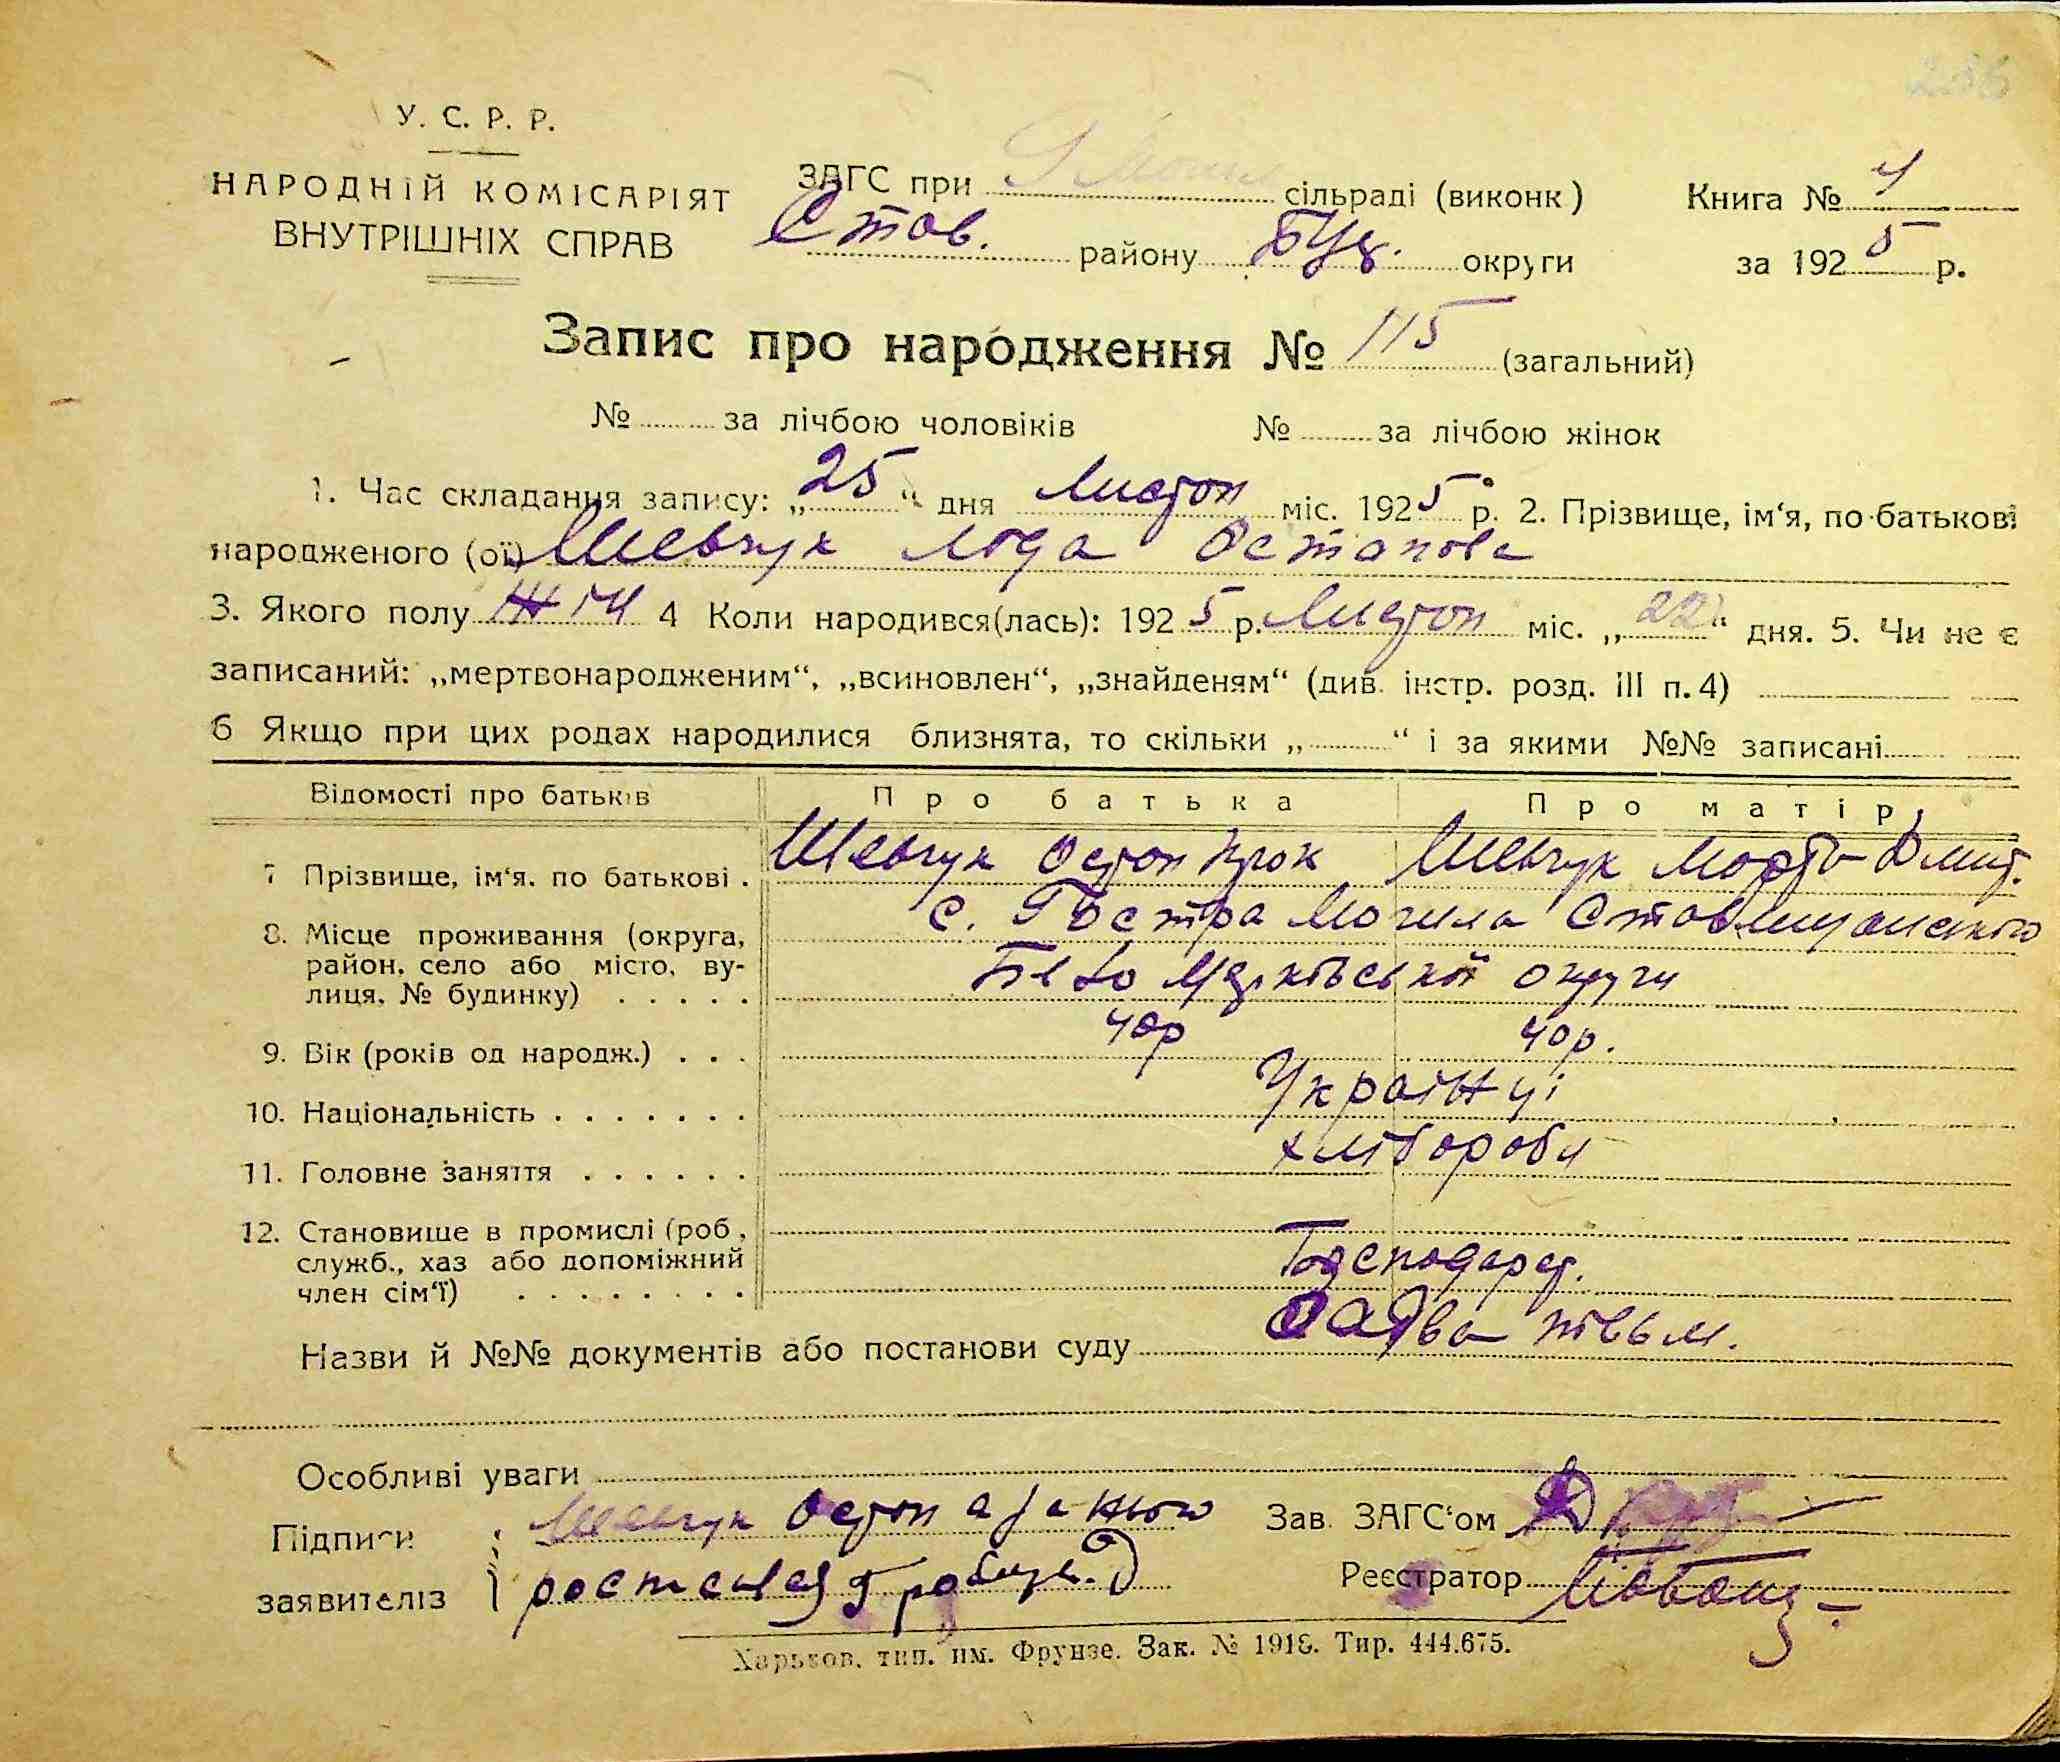 У. С. Р. Р.
НАРОДНІЙ КОМІСАРІЯТ
ВНУТРІШНІХ СПРАВ
ЗАГС при сільраді (виконк)
Став. району Б/Цр. округи
Книга № 4
за 1925 р.
Запис про народження № 115 (загальний)
№ за лічбою чоловіків № за лічбою жінок
1. Час складання запису: „25“ дня Листоп міс. 1925 р. 2. Прізвище, ім‘я, по-батькові
народженого (ої) Шевчук Остапова
3. Якого полу жін 4 Коли народився(лась): 1925 р. Листоп міс. „22“ дня. 5. Чи не є
записаний: „мертвонародженим“, „всиновлен“, „знайденям“ (див. інстр. розд. III п. 4)
6 Якщо при цих родах народилися близнята, то скільки „ “ і за якими №№ записані
Відомості про батьків Про батька Про матір
7 Прізвище, ім‘я, по батькові . Шевчук Остап Прок Шевчук Марта Дмит.
8. Місце проживання (округа, с. Гостра Могила Ставищанського
район, село або місто, ву-
лиця, № будинку) . . . . . Біло Церківської округи
9. Вік (років од народж.) . . . 40р 40р.
10. Національність . . . . . . . Українці
11. Головне заняття . . . . . . хлібороби
12. Становище в промислі (роб.,
служб., хаз або допоміжний Господарст.
член сім‘ї) . . . . . . . .
Назви й №№ документів або постанови суду
Особливі уваги
Підписи Шевчук Остап а за нього
заявителіз
Зав. ЗАГС‘ом
Реєстратор
Харьков, тип. им. Фрунзе. Зак. № 1918. Тир. 444.675.